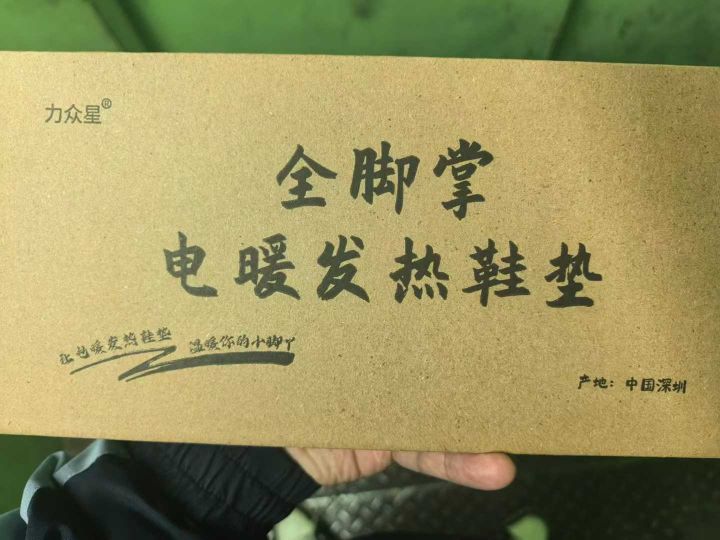 力众星®
全脚掌
电暖发热鞋垫
让电暖发热鞋垫 温暖你的小脚丫
产地：中国深圳